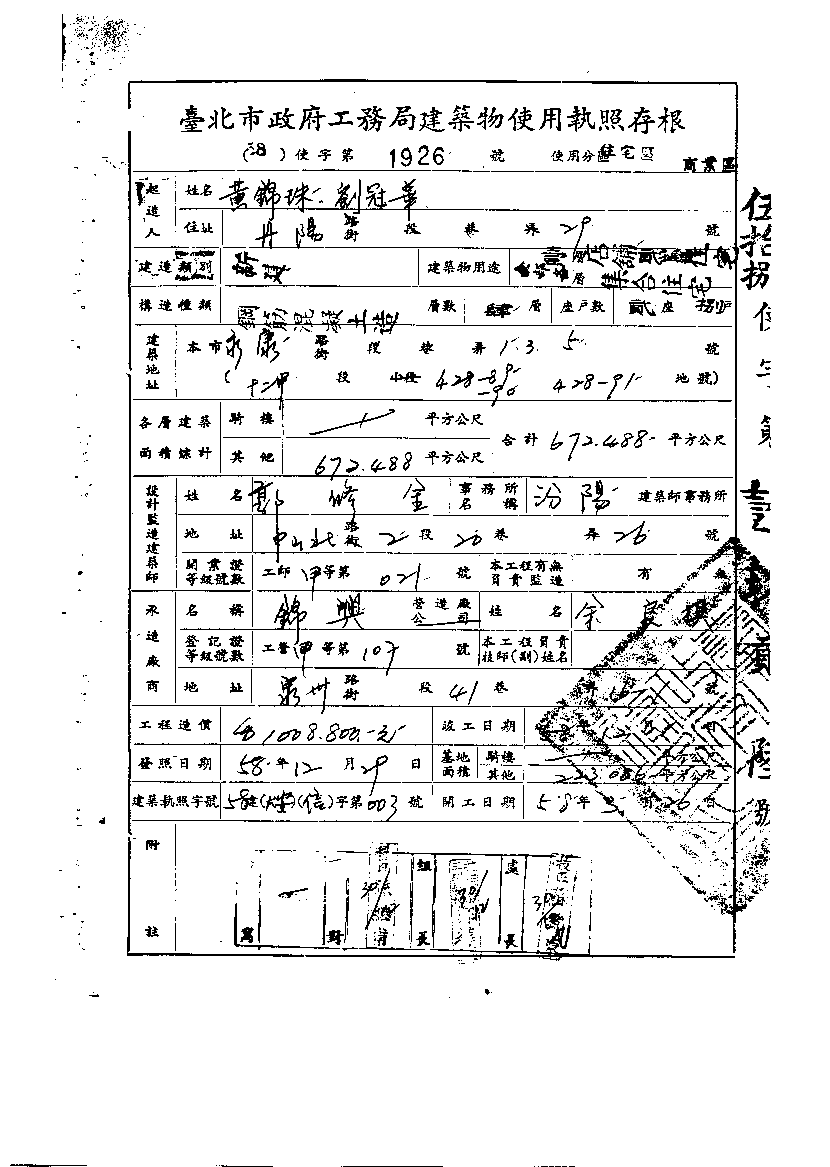 臺北市政府工務局建築物使用執照存根
(58)使字第 1926 號 使用分區住宅區 商業區
起造人 姓名 黃錦珠 劉冠華
住址 丹陽 路街 段 巷 弄 29 號
建造類別 新建 建築物用途 店舖 集合住宅
構造種類 鋼筋混凝土造 層數 肆 層 座戶數 貳座 捌戶
建築地址 本市永康 路街 段 巷 弄 1.3.5 號
( 段 小段 428-89 -90 428-91 地號)
各層建築面積總計 騎樓 平方公尺 合計 672.488 平方公尺
其他 672.488 平方公尺
設計監造建築師 姓名 修金 事務所名稱 汾陽 建築師事務所
地址 中山北 路街 2段 20巷 弄 26 號
開業證等級號數 工師甲等第 021 號 本工程有無負責監造 有
承造廠商 名稱 錦興 營造廠公司 姓名 余良
登記證等級號數 工營甲等第 107 號 本工程負責技師(副)姓名
地址 泉州 路街 段 41 巷 號
工程造價 1008.800.元 竣工日期 58年12
發照日期 58年12月29日 基地面積 騎樓 平方公尺
其他 223.086 平方公尺
建築執照字號 58建()(信)字第003號 開工日期 58年 月26日
附註
寫 對 組長 處長
伍拾捌使字第壹 陸號